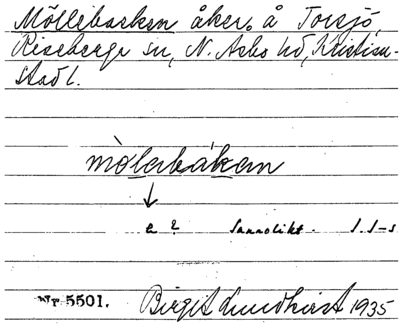 Möllebacken åker å Torsjö,
Riseberga sn, N. Asbo hd, Kristian-
stad l.
mòlabákan
↓
a ? Sannolikt. J. J-s
Nr 5501. Birgit Lundkvist 1935